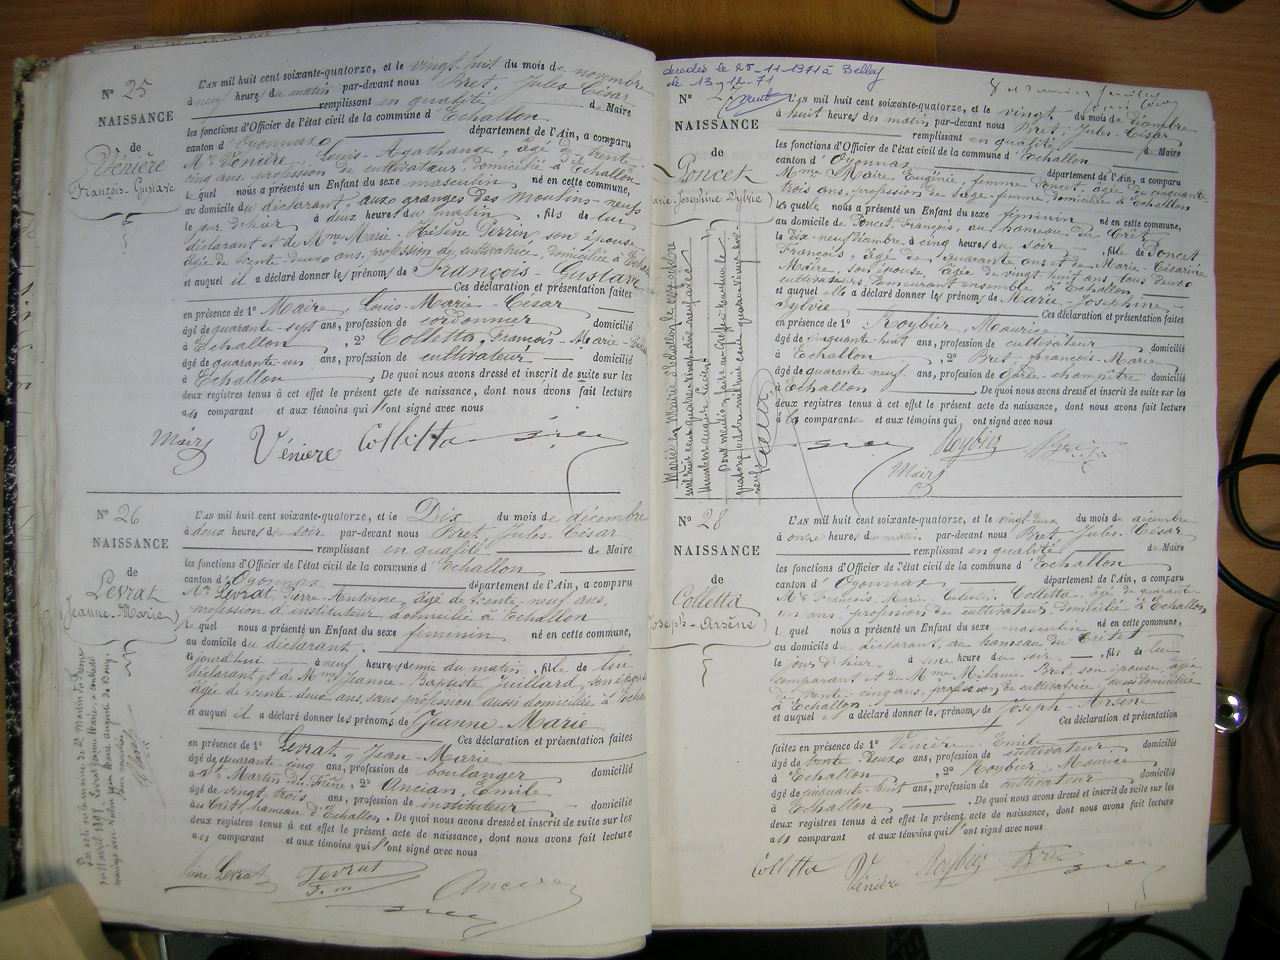 N° 25
NAISSANCE
de
Vénière
François-Gustave
L'AN mil huit cent soixante-quatorze, et le vingt huit du mois de novembre
à neuf heures du matin par-devant nous Bret, Jules César
remplissant en qualité de Maire
les fonctions d'Officier de l'état civil de la commune d'Echallon
canton d'Oyonnax département de l'Ain, a comparu
Mr Vénière, Louis-Agathange, âgé de trente-
cinq ans, profession de cultivateur, domicilié à Echallon
lequel nous a présenté un Enfant du sexe masculin né en cette commune,
au domicile du déclarant, aux granges des moulins-neufs
le jour d'hier à deux heures du matin, fils de lui
déclarant et de Mme Marie-Hélène Perrin, son épouse,
âgée de trente-deux ans, profession de cultivatrice, domiciliée à Echallon
et auquel il a déclaré donner les prénoms de François-Gustave
Ces déclaration et présentation faites
en présence de 1° Maire, Louis-Marie-César
âgé de quarante-sept ans, profession de cordonnier domicilié
à Echallon, 2° Colletta, François-Marie
âgé de quarante un ans, profession de cultivateur, domicilié
à Echallon. De quoi nous avons dressé et inscrit de suite sur les
deux registres tenus à cet effet le présent acte de naissance, dont nous avons fait lecture
aux comparant et aux témoins qui l'ont signé avec nous
Vénière Colletta
N° 26
NAISSANCE
de
Levrat
Jeanne-Marie
L'AN mil huit cent soixante-quatorze, et le Dix du mois de décembre
à deux heures du soir par-devant nous Bret, Jules-César
remplissant en qualité de Maire
les fonctions d'Officier de l'état civil de la commune d'Echallon
canton d'Oyonnax département de l'Ain, a comparu
Mr Levrat Pierre-Antoine, âgé de trente-neuf ans,
profession d'instituteur, domicilié à Echallon
lequel nous a présenté un Enfant du sexe féminin né en cette commune,
au domicile du déclarant
aujourd'hui à neuf heures demie du matin, fille de lui
déclarant et de Mme Jeanne-Baptiste Juillard, son épouse
âgée de trente-deux ans, sans profession aussi domiciliée à Echallon
et auquel il a déclaré donner les prénoms de Jeanne Marie
Ces déclaration et présentation faites
en présence de 1° Levrat, Jean-Marie
âgé de quarante cinq ans, profession de boulanger domicilié
à St Martin du Frêne, 2° Ancian, Emile
âgé de vingt trois ans, profession de instituteur domicilié
au Crêt, hameau d'Echallon. De quoi nous avons dressé et inscrit de suite sur les
deux registres tenus à cet effet le présent acte de naissance, dont nous avons fait lecture
aux comparant et aux témoins qui l'ont signé avec nous
Levrat Levrat Ancian
décédée le 25-11-1971 à Belley
le 13-12-71
N° 27
NAISSANCE
de
Poncet
Marie-Joséphine-Sylvie
L'AN mil huit cent soixante-quatorze, et le vingt du mois de décembre
à huit heures du matin par-devant nous Bret, Jules-César
remplissant en qualité de Maire
les fonctions d'Officier de l'état civil de la commune d'Echallon
canton d'Oyonnax département de l'Ain, a comparu
Mme Maire Eugénie, femme Poncet, âgée de cinquante-
trois ans, profession de sage-femme, domiciliée à Echallon
laquelle nous a présenté un Enfant du sexe féminin né en cette commune,
au domicile de Poncet, François, au hameau du Crêt
le dix-neuf à cinq heures du soir, fille de Poncet
François, âgé de quarante ans et de Marie-Césarine
Maire, son épouse, âgée de vingt huit ans, tous deux
cultivateurs, demeurant ensemble à Echallon
et auquel elle a déclaré donner les prénoms de Marie-Joséphine-
Sylvie Ces déclaration et présentation faites
en présence de 1° Roybier, Maurice
âgé de cinquante-huit ans, profession de cultivateur domicilié
à Echallon, 2° Bret, François-Marie
âgé de quarante neuf ans, profession de garde-champêtre domicilié
à Echallon. De quoi nous avons dressé et inscrit de suite sur les
deux registres tenus à cet effet le présent acte de naissance, dont nous avons fait lecture
à la comparante et aux témoins qui ont signé avec nous
Roybier
N° 28
NAISSANCE
de
Colletta
Joseph-Arsène
L'AN mil huit cent soixante-quatorze, et le vingt-deux du mois de décembre
à onze heures du matin par-devant nous Bret, Jules-César
remplissant en qualité de Maire
les fonctions d'Officier de l'état civil de la commune d'Echallon
canton d'Oyonnax département de l'Ain, a comparu
Mr François Marie Colletta, âgé de quarante
un ans, profession de cultivateur domicilié à Echallon
lequel nous a présenté un Enfant du sexe masculin né en cette commune,
au domicile du déclarant, au hameau du Crêtet
le jour d'hier à une heure du soir, fils de lui
comparant et de Mme Mélanie Bret, son épouse, âgée
de trente-cinq ans, profession de cultivatrice, aussi domiciliée
à Echallon
et auquel il a déclaré donner les prénoms de Joseph-Arsène
Ces déclaration et présentation
faites en présence de 1° Vénière, Emile
âgé de trente deux ans, profession de cultivateur, domicilié
à Echallon, 2° Roybier Maurice
âgé de cinquante-huit ans, profession de cultivateur domicilié
à Echallon. De quoi nous avons dressé et inscrit de suite sur les
deux registres tenus à cet effet le présent acte de naissance, dont nous avons fait lecture
aux comparant et aux témoins qui l'ont signé avec nous
Colletta Vénière Roybier